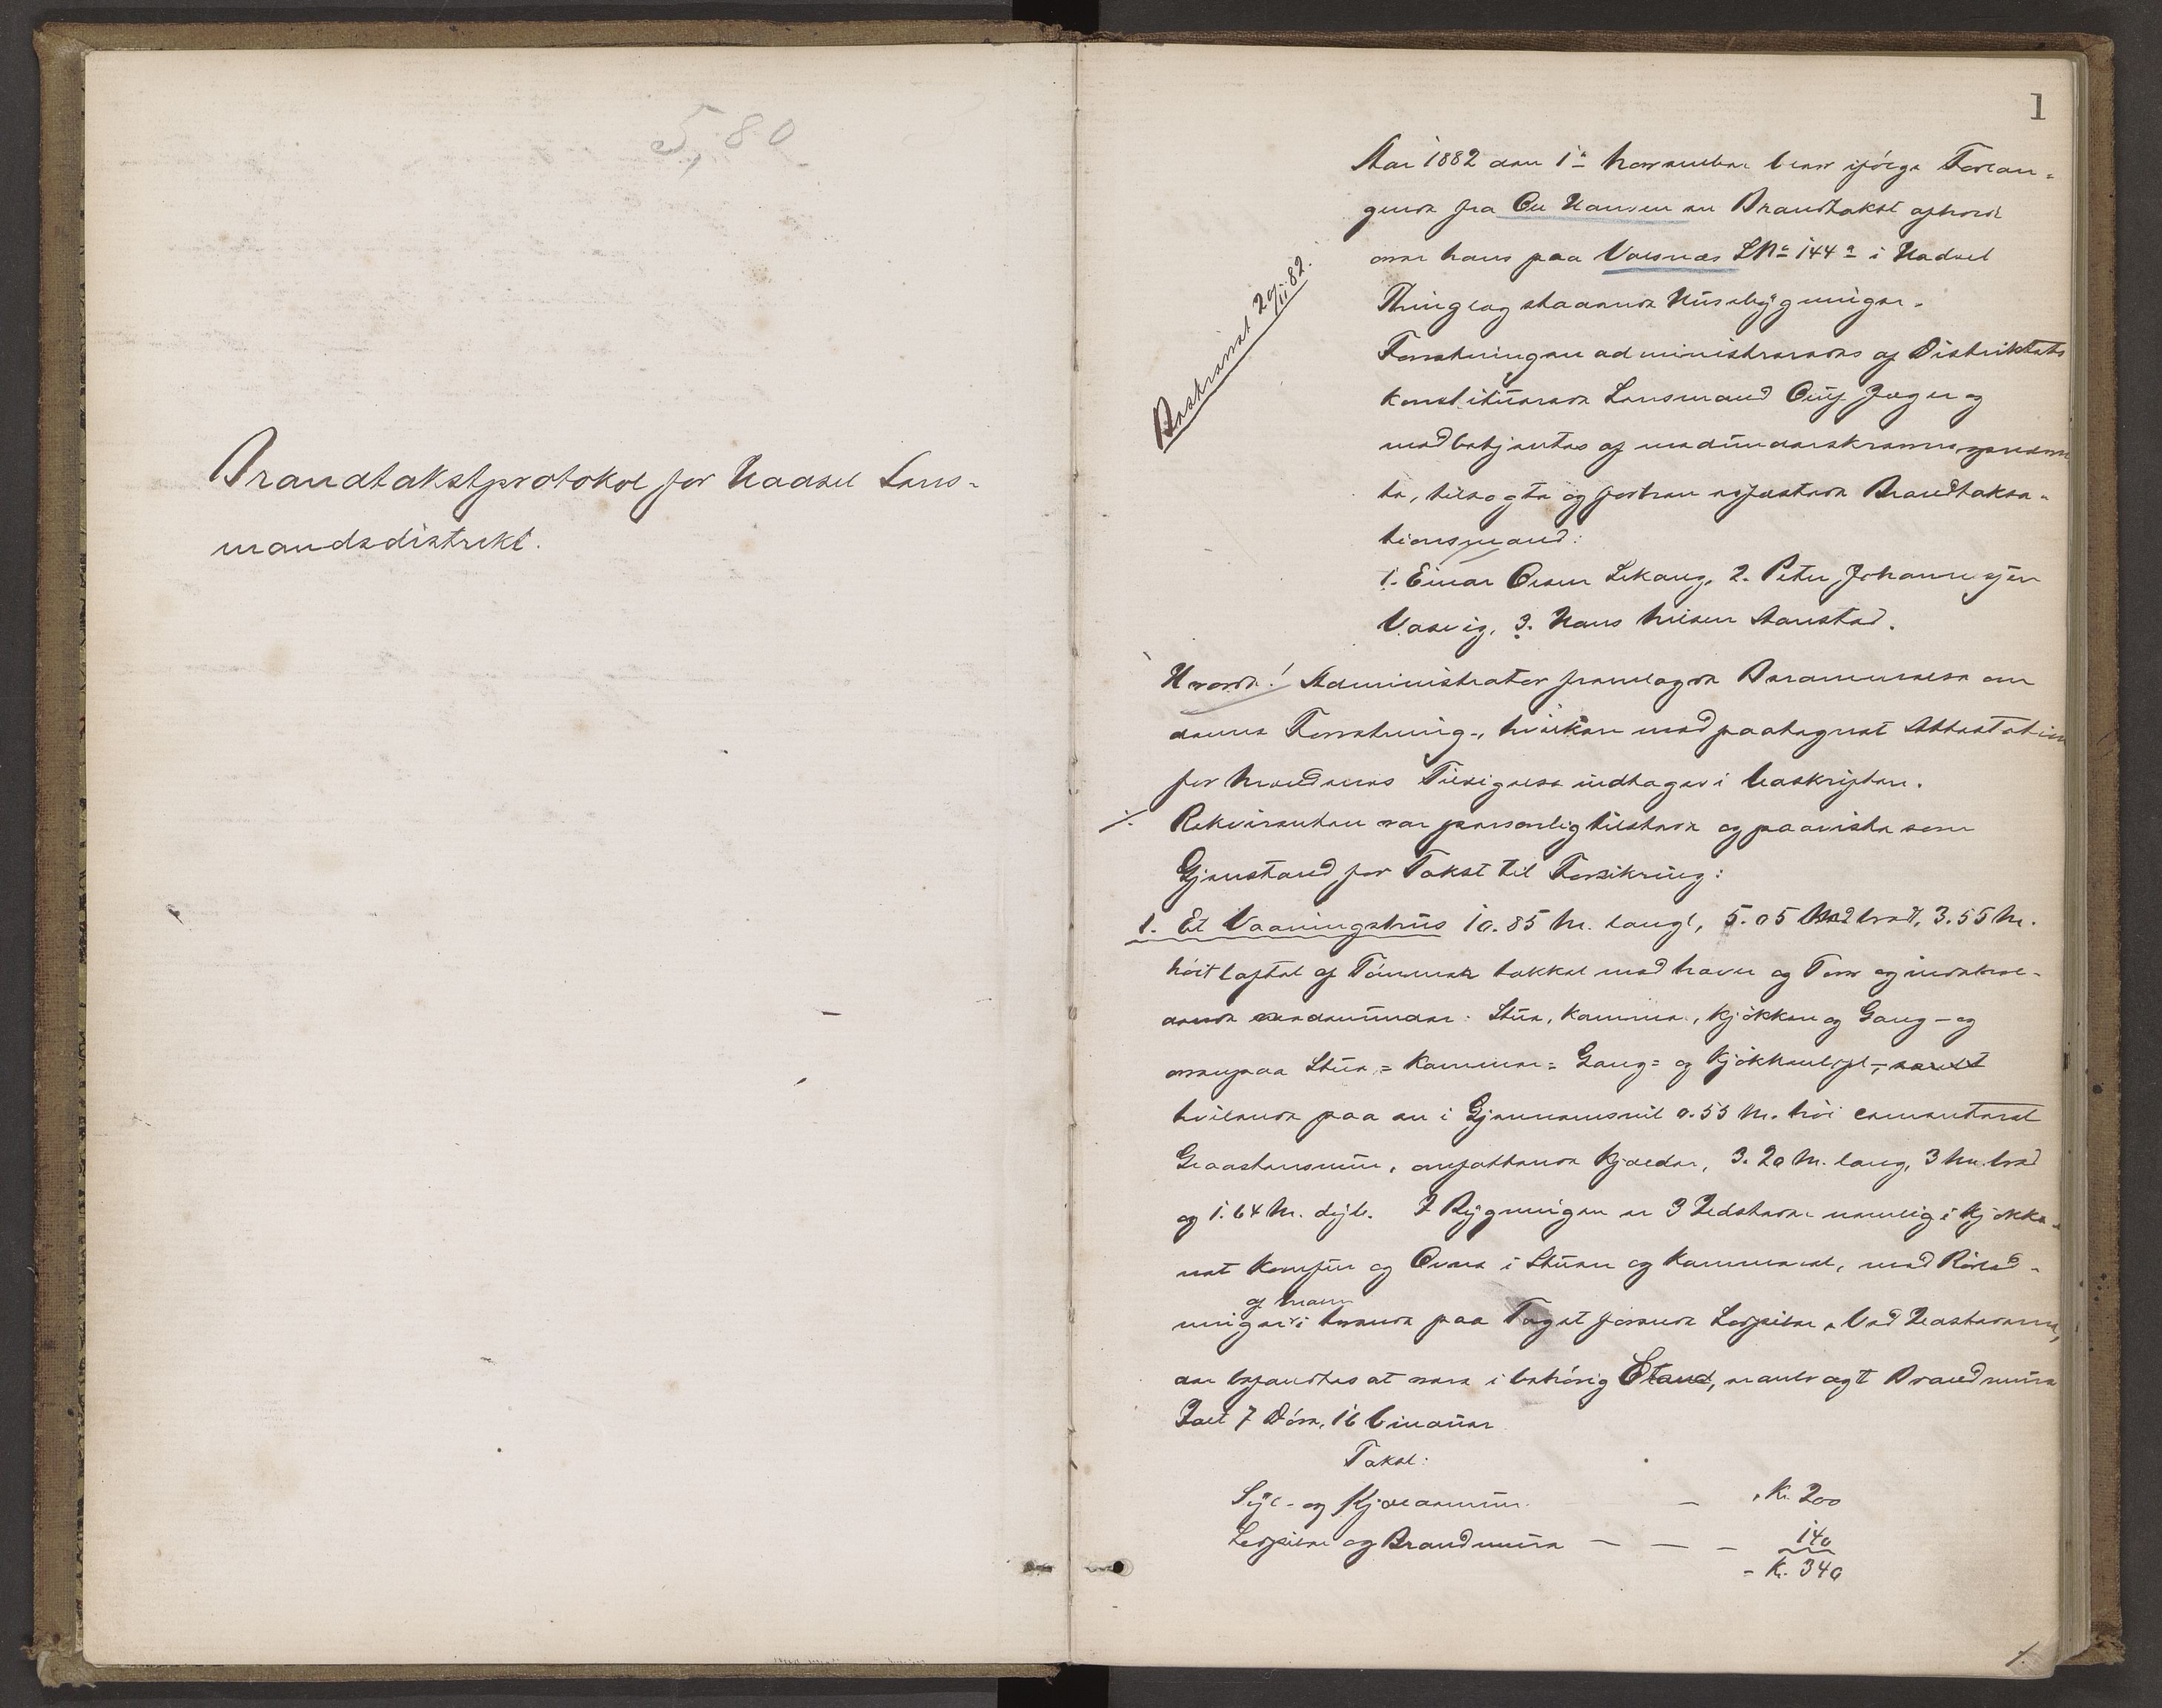 5,80
Brandtakstprotokol for Hadsel Lens-
mandsdistrikt.
1
Aar 1882 den 1ste November blev ifølge Forlan-
gende fra Ole Hansen en Brandtakst afholdt
over hans paa Volsnæs LNo 144a i Hadsel
Thinglag staaende Husebygninger.
Beskrevet 29/11 82.
Forretningen administreredes af Distriktets
konstituerede Lensmand Oluf Jæger og
medbetjentes af medunderskrevne
te, tilsagte og forhen edfæstede Brandtaksa-
tionsmænd:
1. Einar Olsen Lekang, 2. Peter Johannessen
Vaselvig, 3. Hans Nilsen Haustad.
Hvorda! Administrator fremlagde Berammelse om
denne Forretning, hvilken med paategnet Attestation
for Mændenes Tilsigelse indtages i Beskriften.
./. Rekvirenten var personlig tilstede og paaviste som
Gjenstand for Takst til Forsikring:
1. Et Vaaningshus 10.85 M. langt, 5.05 M. bredt, 3.55 M.
høit loftet af Tømmer takket med Næver og Torv og indehol-
dende nedenunder: Stue, Kammer, Kjøkken og Gang - og
ovenpaa Stue= Kammer= Gang= og Kjøkkenloft,
hvilende paa en i Gjennemsnit 0.55 M. høi cementeret
Graastensmur, omfattende Kjælder, 3.20 M. lang, 3 M. bred
og 1.64 M. dyb. I Bygningen er 3 Ildsteder nemlig i Kjøkke-
net Komfur og Ovne i Stuen og Kammeret, med Rørled-
ninger i
paa Taget førende Ledpiber. Ved Ildstederne,
der befandtes at være i behørig Stand, er anbragt Brandmure
Ialt 7 Døre, 16 Vinduer
Takst:
Syl- og Kjældermur - Kr. 200
Ledpiber og Brandmure - - - 140
- Kr. 340
1.